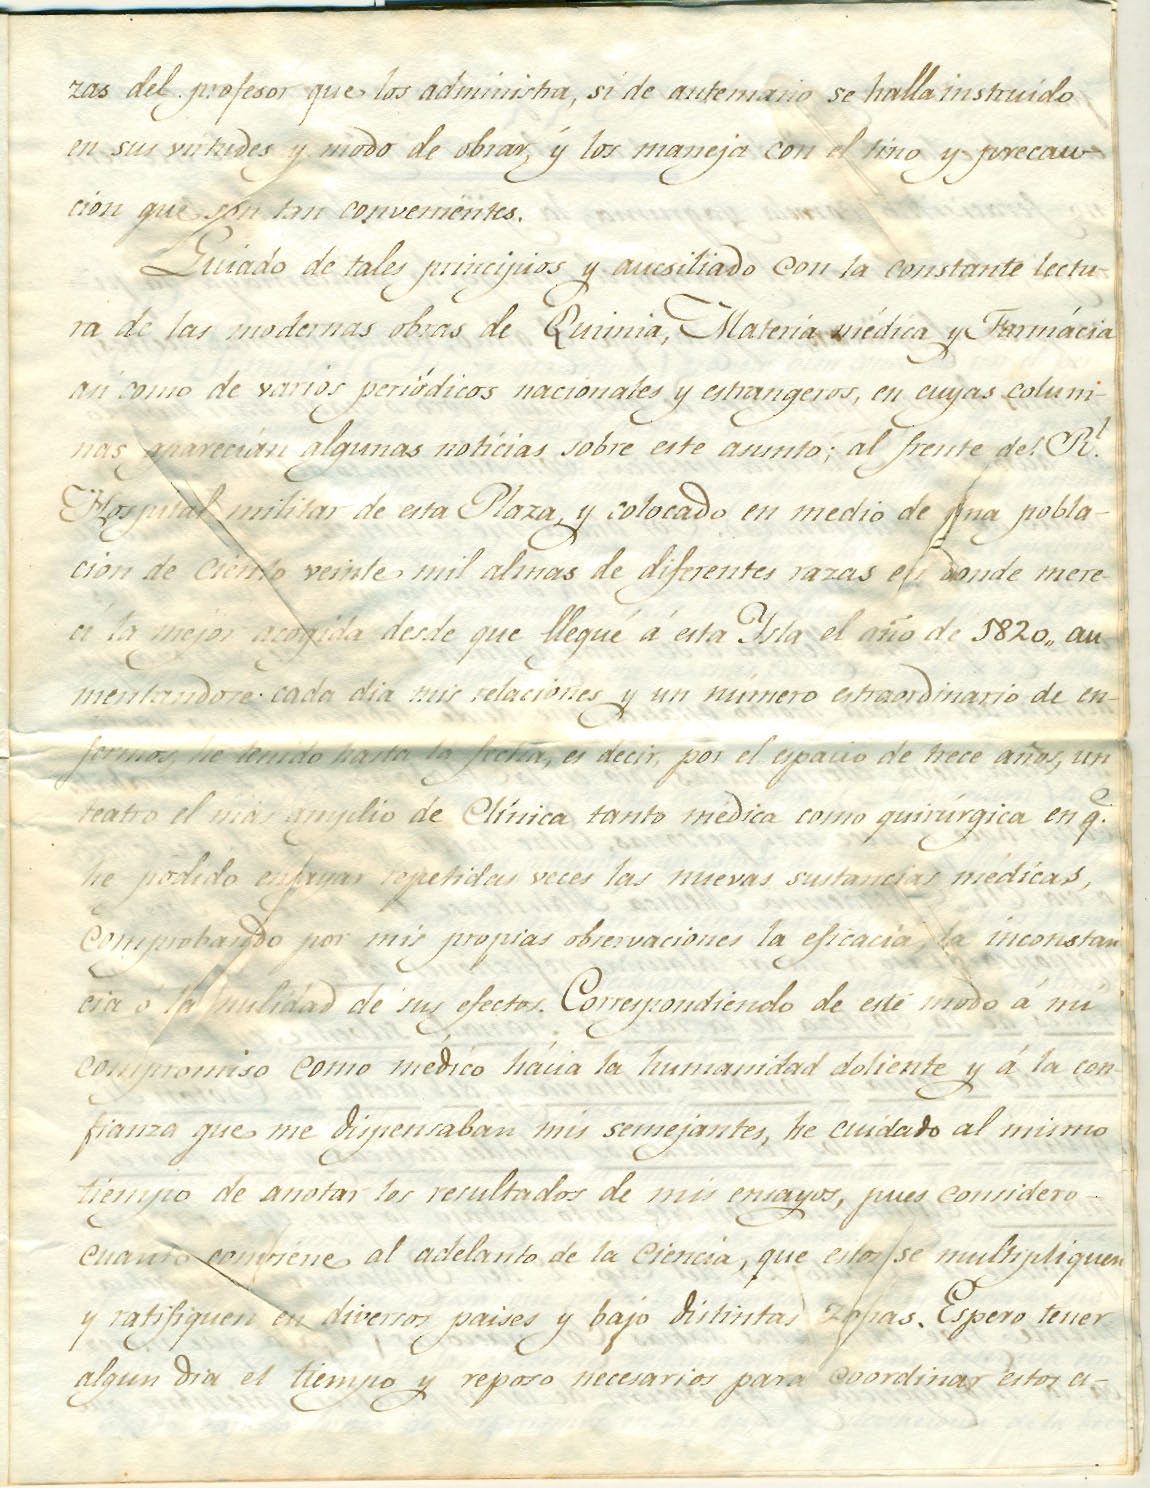 zas del profesor que los administra, si de antemano se halla instruido
en sus virtudes y modo de obrar, y los maneja con el tino y precau-
ción que son tan convenientes.
Guiado de tales principios y aucsiliado con la constante lectu-
ra de las modernas obras de Quimia, Materia médica y Farmácia
asi como de varios periódicos nacionales y estrangeros, en cuyas colum-
nas aparecian algunas noticias sobre este asunto; al frente del Rl.
Hospital militar de esta Plaza, y colocado en medio de una pobla-
cion de ciento veinte mil almas de diferentes razas en donde mere-
ci la mejor acogida desde que llegué á esta Ysla el año de 1820,, au
mentandose cada dia mis relaciones y un número estraordinario de en-
fermos, he tenido hasta la fecha, es decir, por el espacio de trece años, un
teatro el mas amplio de Clínica tanto médica como quirúrgica en q.e
he podido ensayar repetidas veces las nuevas sustancias médicas,
comprobando por mis propias observaciones la eficacia, la inconstan
cia ó la nulidad de sus efectos. Correspondiendo de este modo á mi
compromiso como médico hácia la humanidad doliente y á la con-
fianza que me dispensaban mis semejantes, he cuidado al mismo
tiempo de anotar los resultados de mis ensayos, pues considero
cuanto conviene al adelanto de la Ciencia, que estos se multipliquen
y ratifiquen en diversos paises y bajo distintas zonas. Espero tener
algun dia el tiempo y reposo necesarios para coordinar estos a-